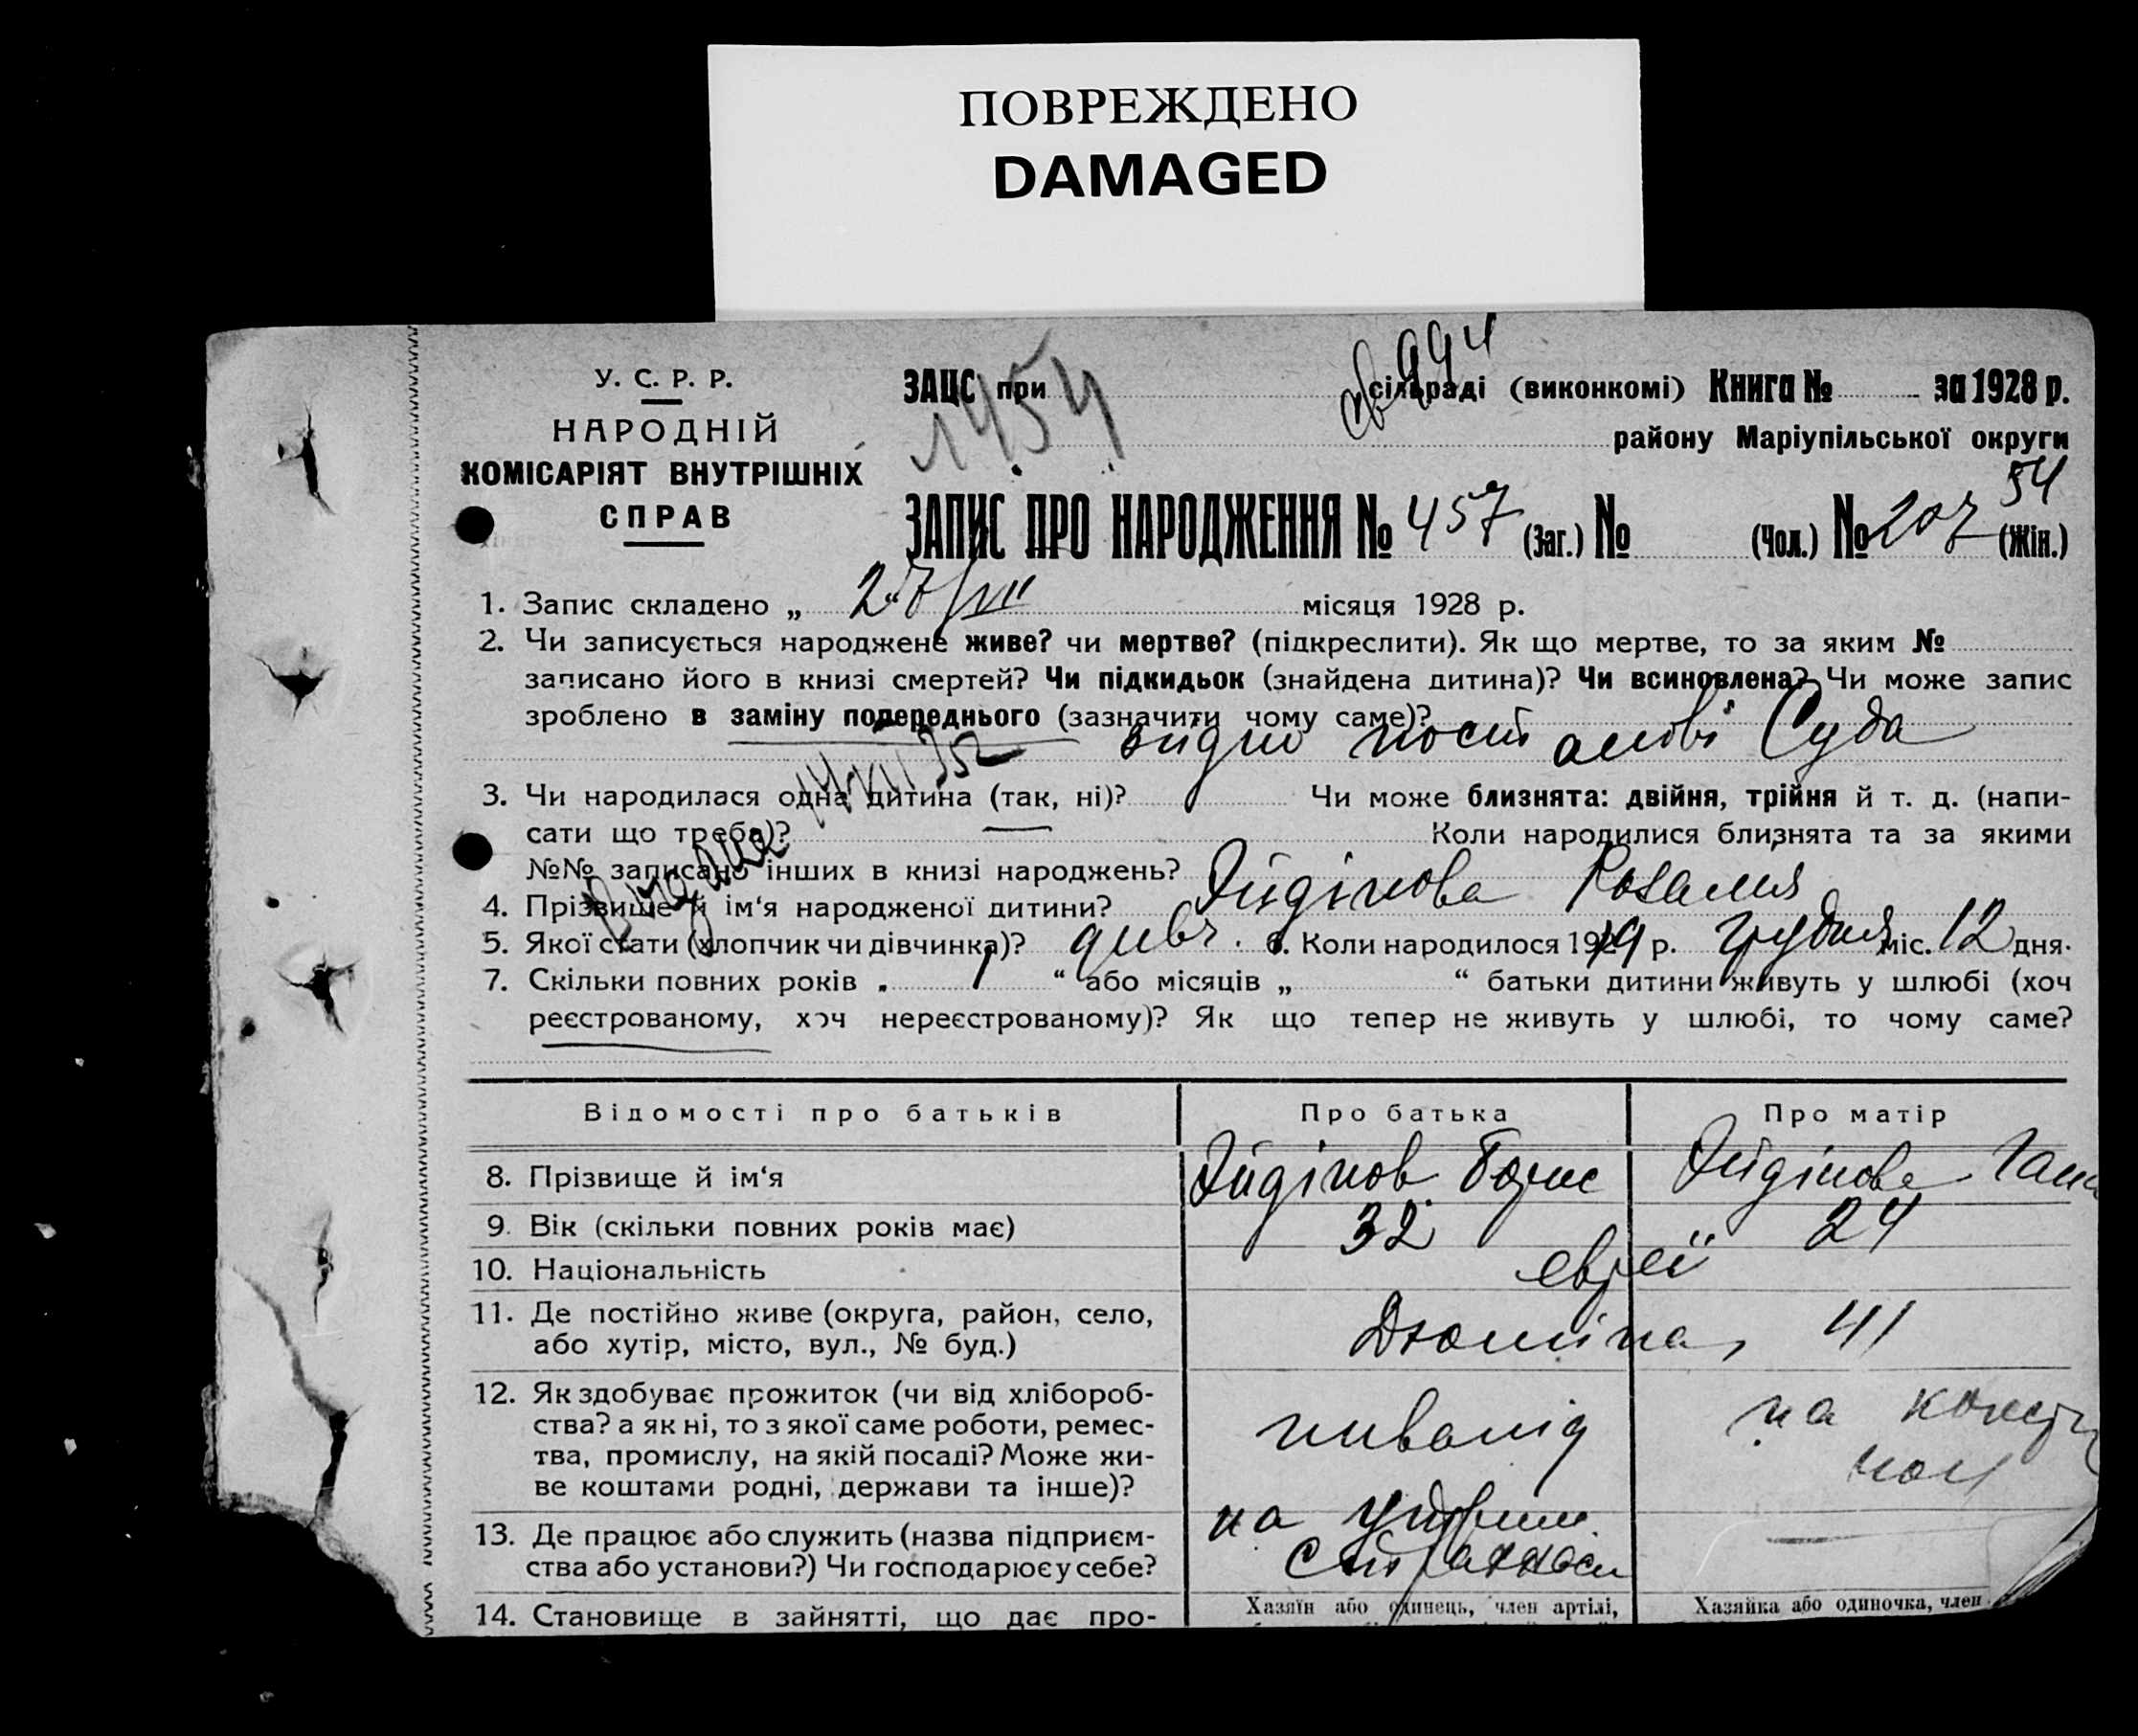 ПОВРЕЖДЕНО
DAMAGED
994
1454
У. С. Р. Р.
НАРОДНІЙ
КОМІСАРІЯТ ВНУТРІШНІХ
СПРАВ
ЗАЦС при сільраді (виконкомі) Книга № за 1928 р.
району Маріупільської округи
54
ЗАПИС ПРО НАРОДЖЕННЯ № 457 (Заг.) № (Чол.) № 207 (Жін.)
1. Запис складено „ 27/VII “ місяця 1928 р.
2. Чи записується народжене живе? чи мертве? (підкреслити). Як що мертве, то за яким №
записано його в книзі смертей? Чи підкидьок (знайдена дитина)? Чи всиновлена? Чи може запис
зроблено в заміну попереднього (зазначити чому саме)?
згідно постанові Суда
3. Чи народилася одна дитина (так, ні)? Чи може близнята: двійня, трійня й т. д. (напи-
сати що треба)? Коли народилися близнята та за якими
№№ записано інших в книзі народжень?
4. Прізвище й ім‘я народженої дитини? Розалия
5. Якої стати (хлопчик чи дівчинка)? дивч. 6. Коли народилося 1919 р. грудня міс. 12 дня.
7. Скільки повних років „ 1 “ або місяців „ “ батьки дитини живуть у шлюбі (хоч
реєстрованому, хоч нереєстрованому)? Як що тепер не живуть у шлюбі, то чому саме?
Відомості про батьків Про батька Про матір
8. Прізвище й ім‘я Борис
9. Вік (скільки повних років має) 32 24
10. Національність євреї
11. Де постійно живе (округа, район, село,
або хутір, місто, вул., № буд.) 41
12. Як здобуває прожиток (чи від хлібороб-
ства? а як ні, то з якої саме роботи, ремес-
тва, промислу, на якій посаді? Може жи-
ве коштами родні, держави та інше)?
инвалід
на
13. Де працює або служить (назва підприєм-
ства або установи?) Чи господарює у себе?
на
14. Становище в зайнятті, що дає про-
Хазяїн або одинець, член артілі,
Хазяйка або одиночка, член